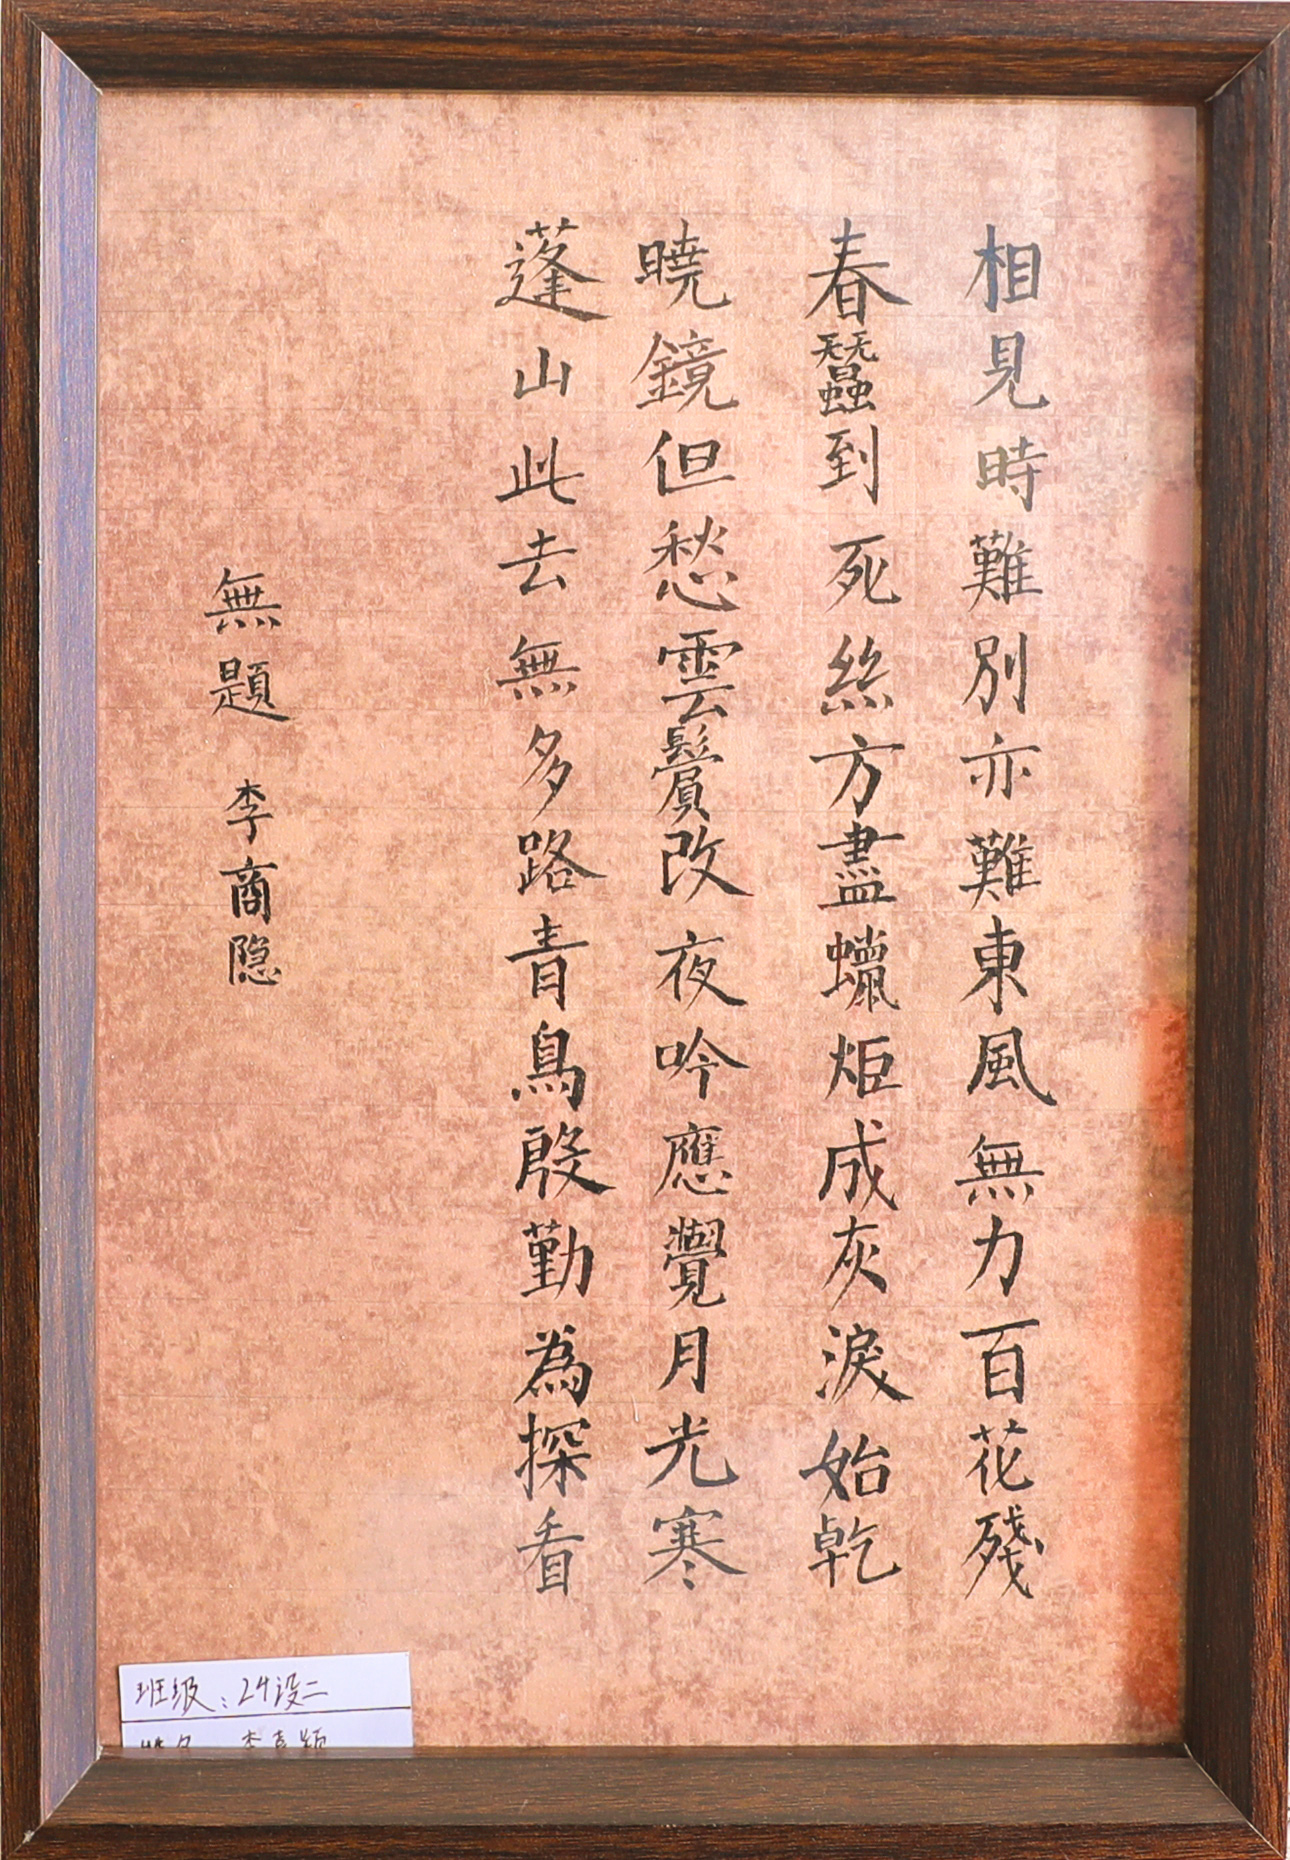 相見時難別亦難東風無力百花殘
春蠶到死絲方盡蠟炬成灰淚始乾
曉鏡但愁雲鬢改夜吟應覺月光寒
蓬山此去無多路青鳥殷勤為探看
無題 李商隐
班级：24设二